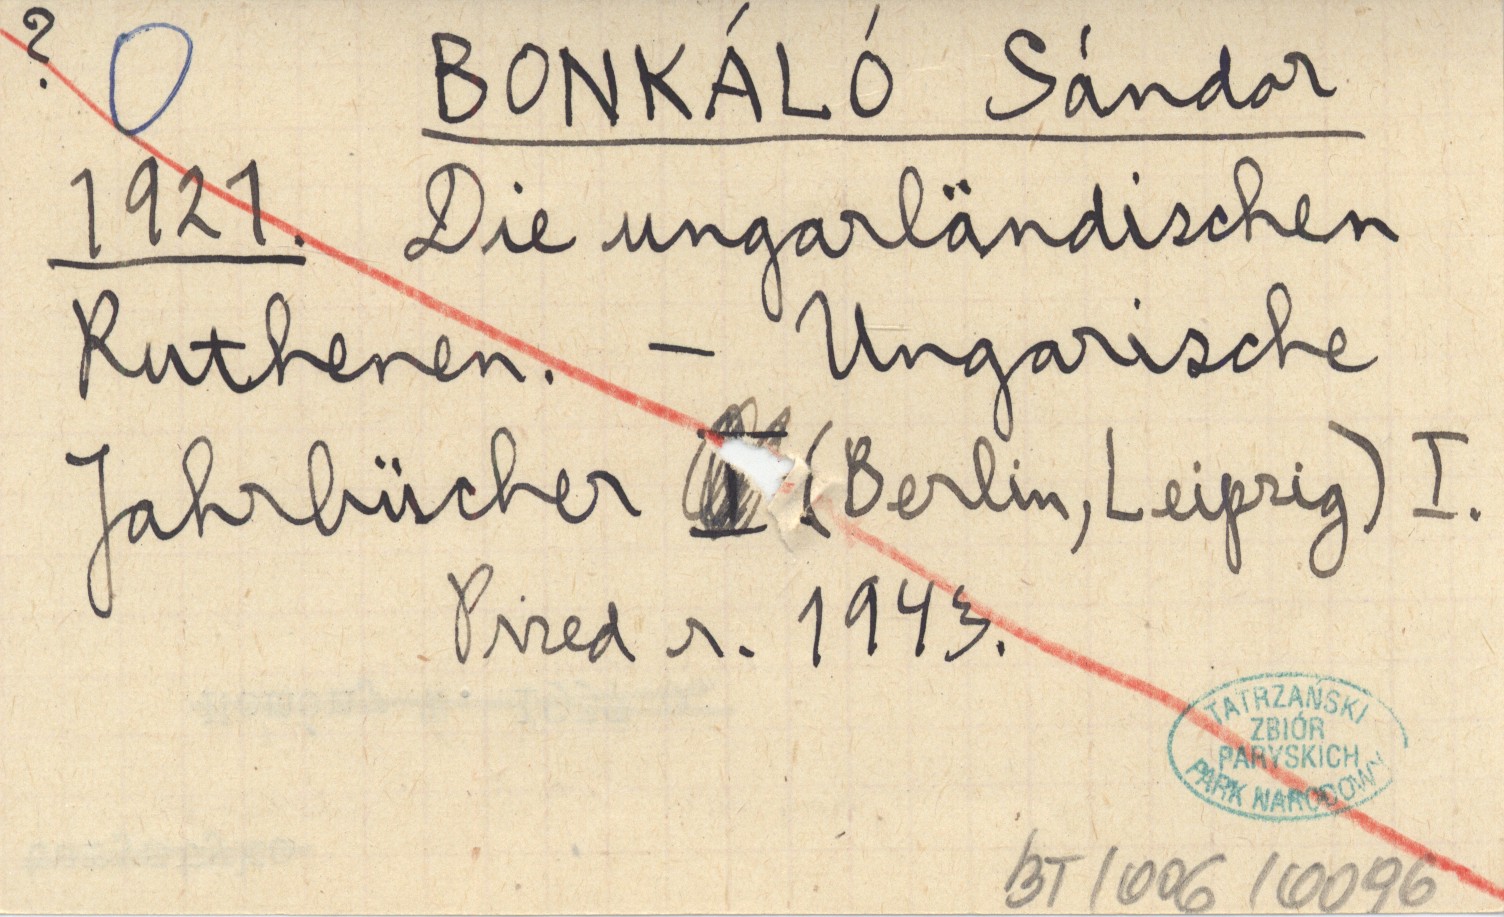 ?
BONKÁLÓ Sándor
1921. Die ungarländischen
Ruthenen. — Ungarische
Jahrbücher I (Berlin, Leipzig) I.
Przed r. 1943.
TATRZAŃSKI
ZBIÓR
PARYSKICH
PARK NARODOWY
BT/006/0096